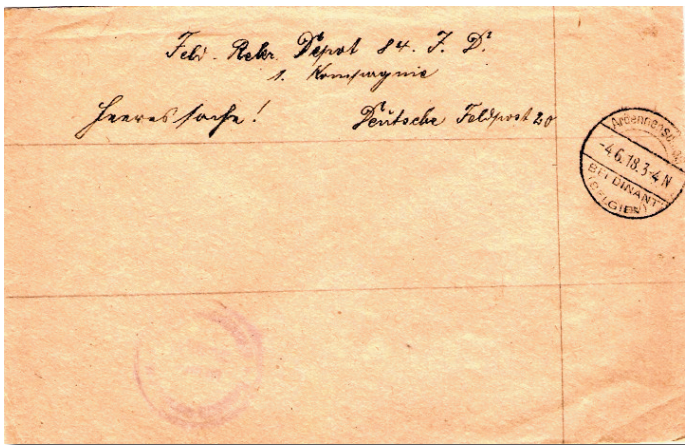 Feld. Rekr. Depot 84. J. D.
1. Kompagnie
Heeressache! Deutsche Feldpost 20
-4.6.18.3-4 N
BEI DINANT
(BELGIEN)